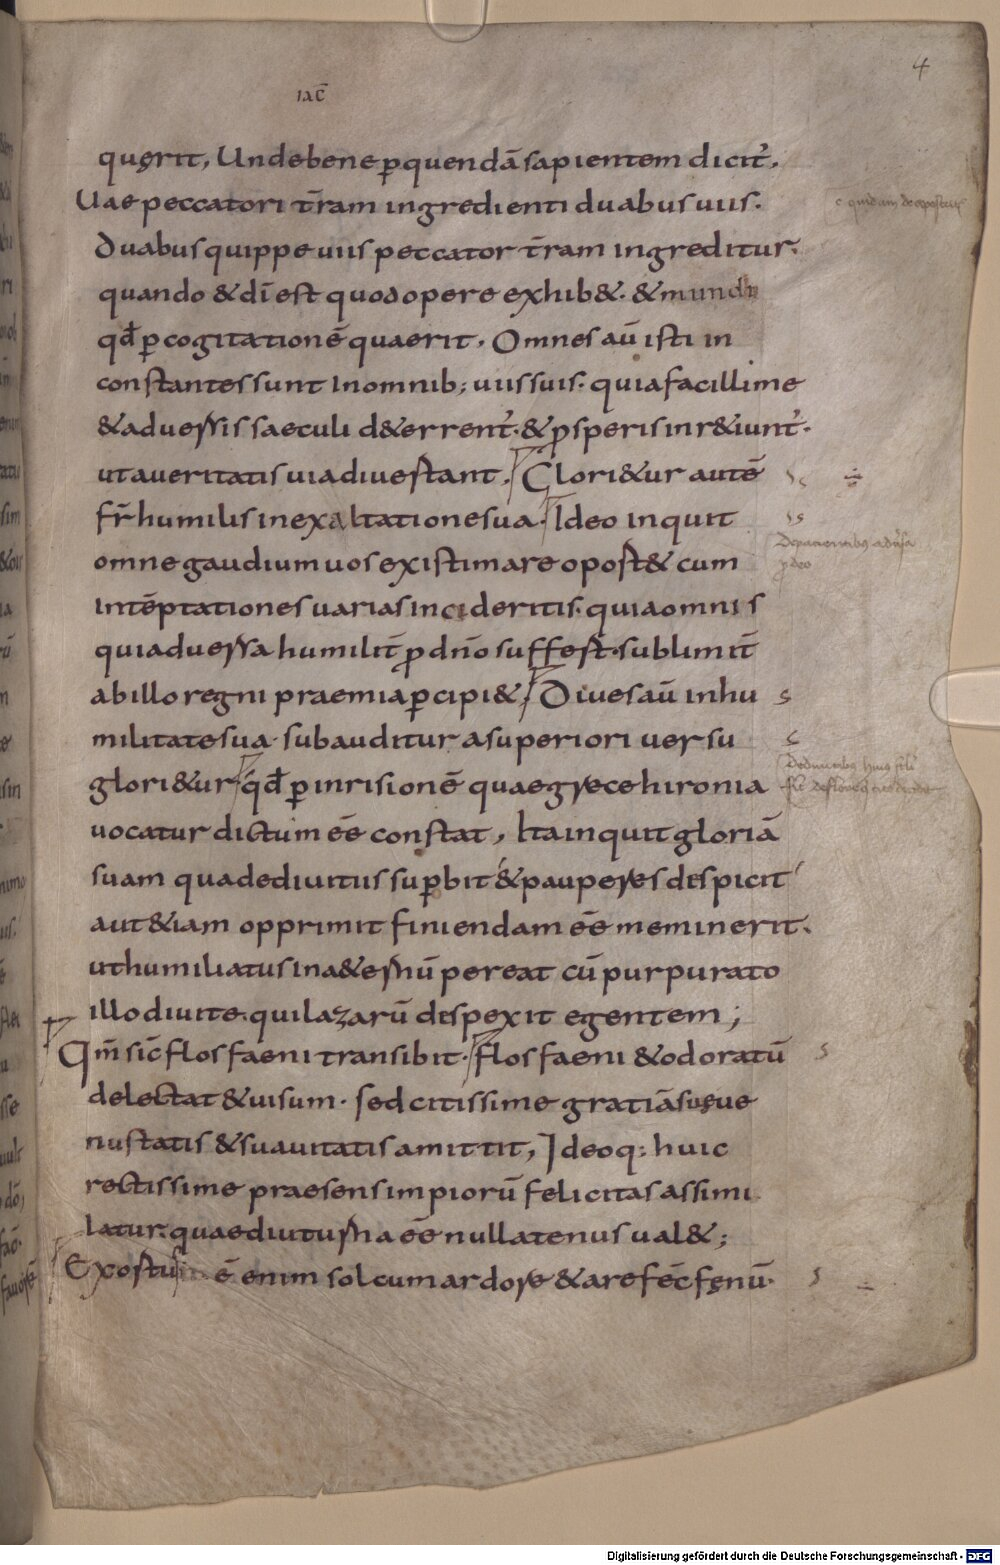 4
iac̄
quęrit, Undebene ꝑquendā sapientem dicit̛.
Uae peccatori t̄ram ingredienti duabus uiis.
Duabus quippe uiis peccator t̄ram ingreditur.
quando & dī est quod opere exhib&. & mundi
qđ ꝑ cogitationē quaerit. Omnes aū isti in
constantes sunt Inomnib; uiis suis. quia facillime
& aduersis saeculi d&errent̛. & ꝓsperis inr&iunt̛.
ut a ueritatis uia diuestant. Glori&ur autē
fr̄ humilis in exaltatione sua. Ideo inquit
omne gaudium uos existimare oport& cum
intēptationes uarias incideritis. quia omnis
qui aduersa humilit̄ ꝓ dn̄o suffert. sublimit̄
ab illo regni praemia ꝑcipi&. Diues aū in hu
militate sua. subauditur a superiori uersu
glori&ur. qđ ꝑ inrisionē quae grece hironia
uocatur dictum eē constat, Ita inquit gloriā
suam qua de diuitiis suꝑbit & pauperes despicit
aut &iam opprimit finiendam eē meminerit.
ut humiliatus in a&ernū pereat cū purpurato
illo diuite. qui lazarū despexit egentem;
Qm̄ sic̄ flos faeni transibit. flos faeni & odoratū
delectat & uisum. sed citissime gratiā suę ue
nustatis & suauitatis amittit, Ideoq: huic
rectissime praesens impiorū felicitas assimi
latur. quae diuturna eē nullatenus ual&;
Exortus ē enim sol cum ardore & arefec̄ fęnū.
Digitalisierung gefördert durch die Deutsche Forschungsgemeinschaft - DFG